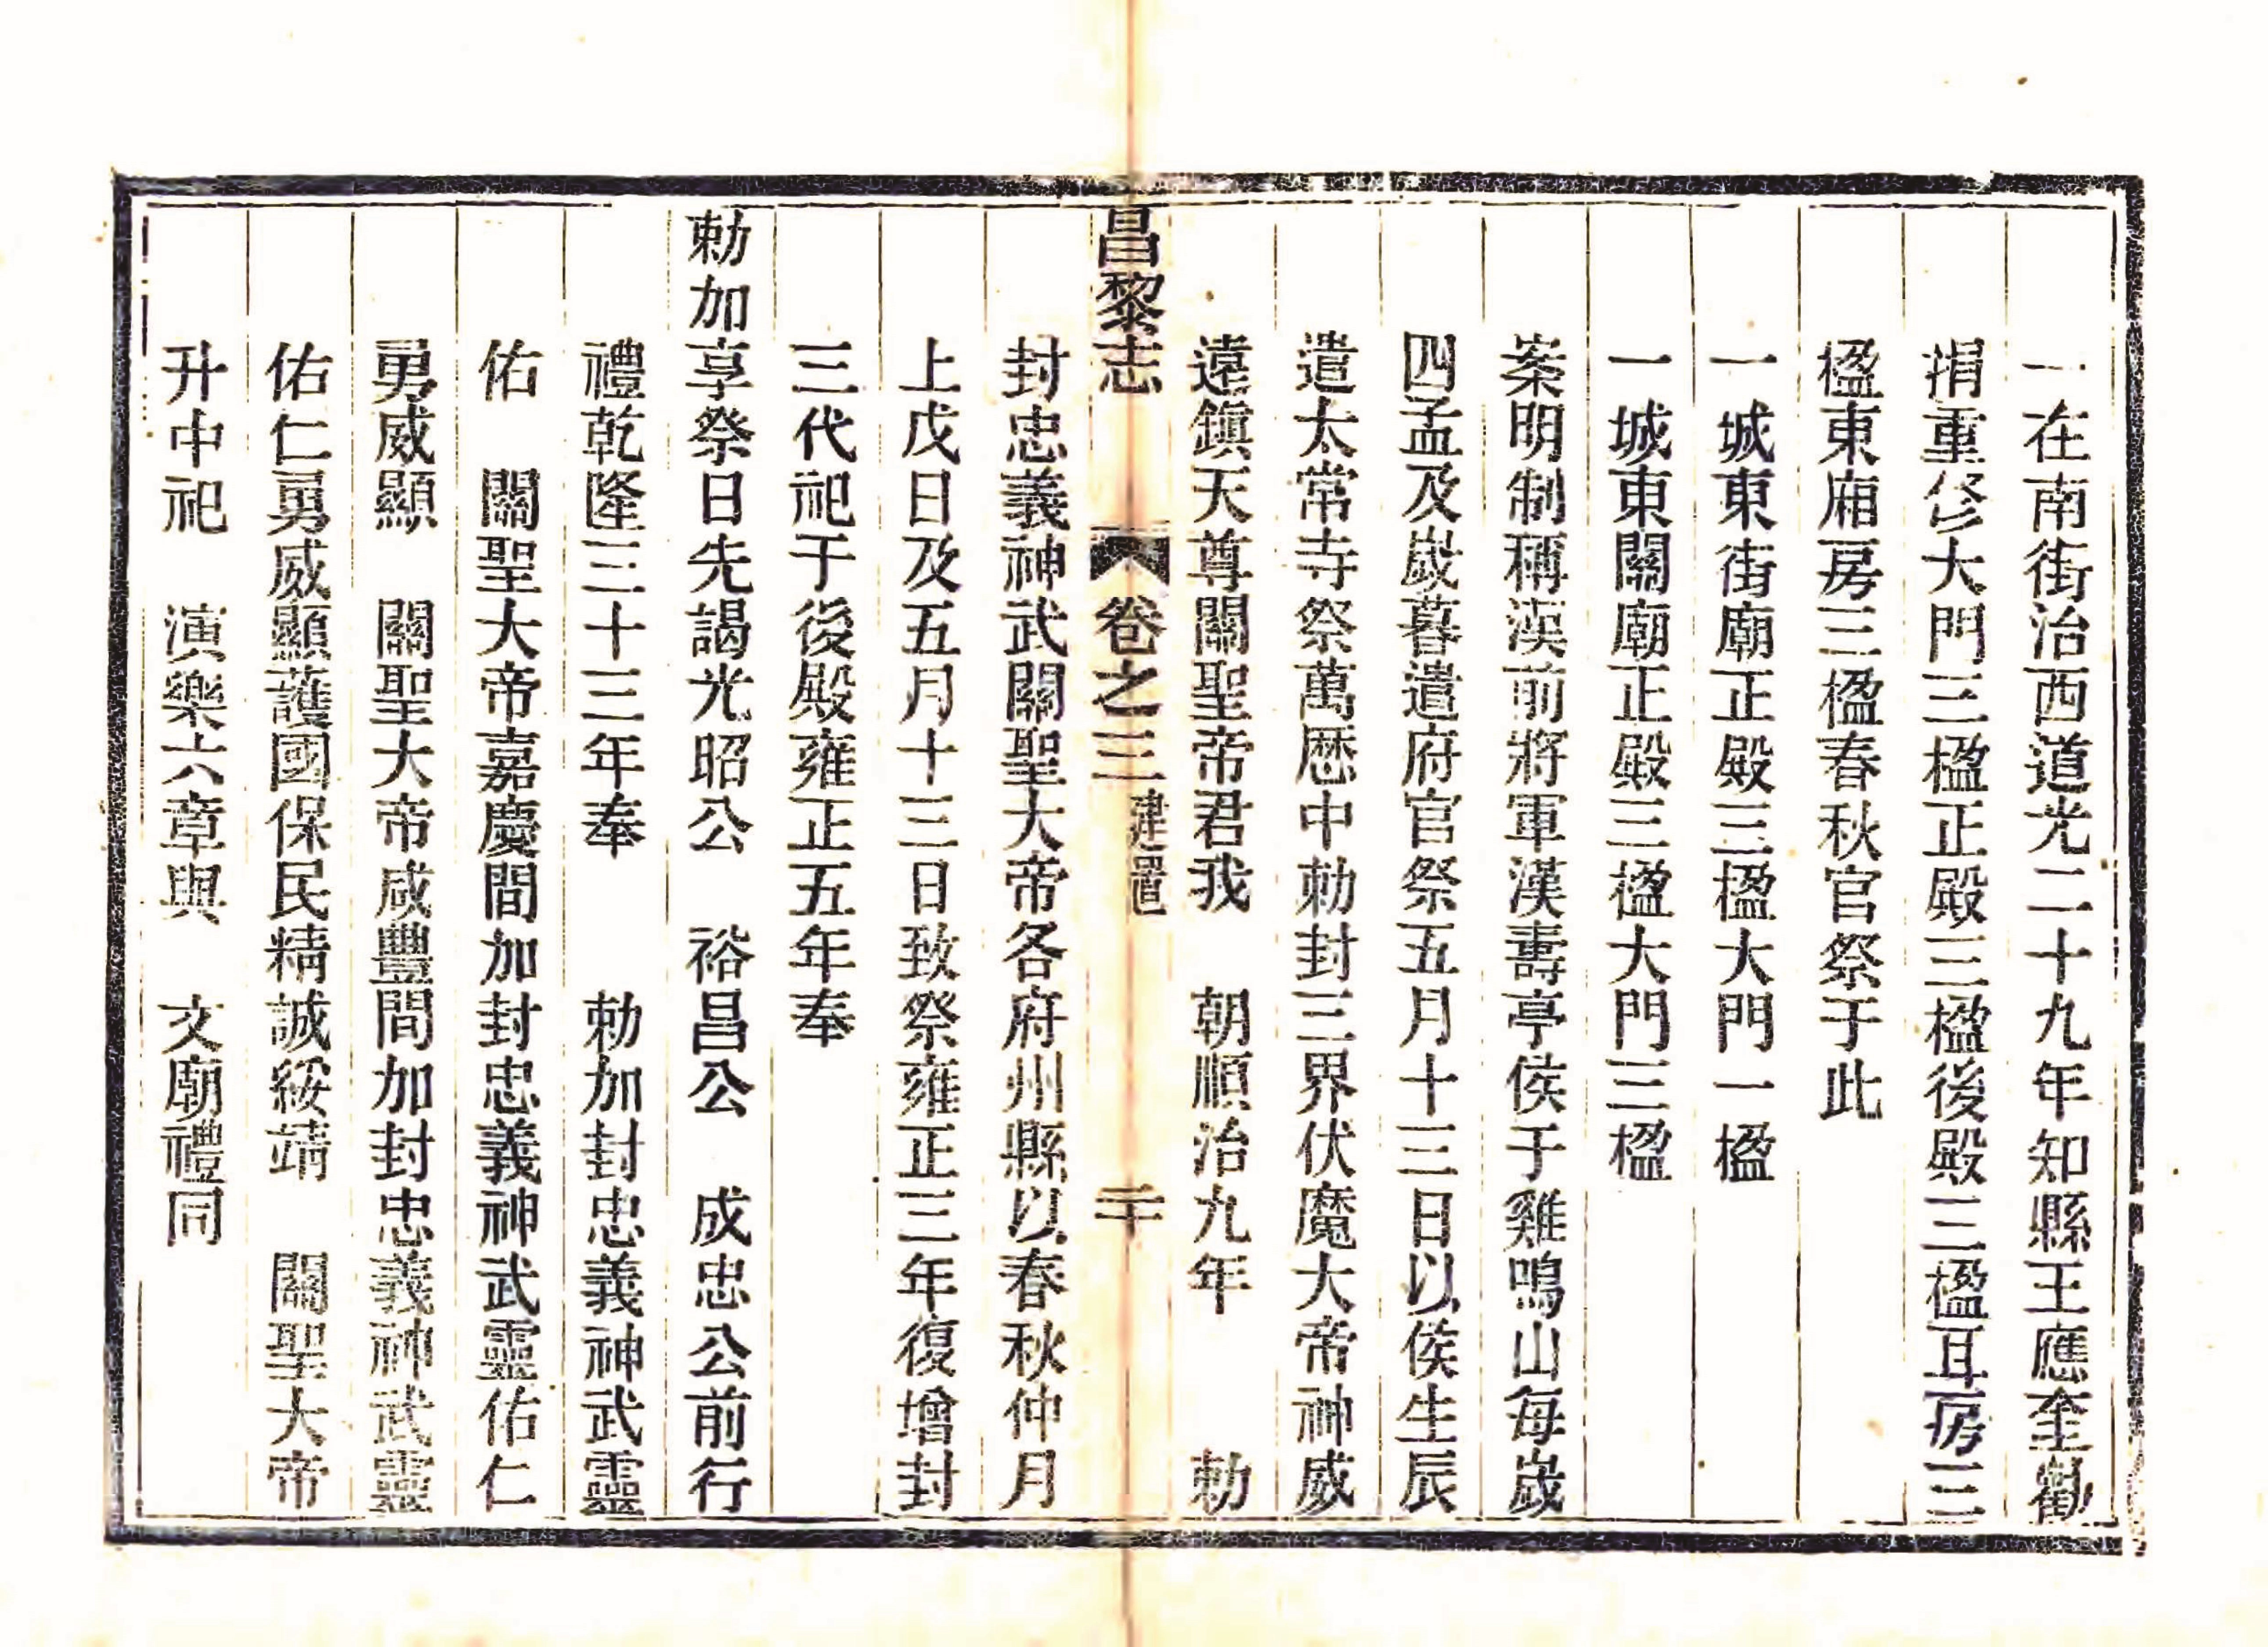 一在南街治西道光二十九年知縣王應奎勸
捐重修大門三楹正殿三楹後殿三楹耳房三
楹東廂房三楹春秋官祭于此
一城東街廟正殿三楹大門一楹
一城東關廟正殿三楹大門三楹
案明制稱漢前將軍漢壽亭侯于雞鳴山每歲
四孟及歲暮遣府官祭五月十三日以侯生辰
遣太常寺祭萬歷中勅封三界伏魔大帝神威
遠鎮天尊關聖帝君我　朝順治九年　　勅
昌黎志　卷之三　建置　二十
封忠義神武關聖大帝各府州縣以春秋仲月
上戊日及五月十三日致祭雍正三年復增封
三代祀于後殿雍正五年奉
勅加享祭日先謁光昭公　裕昌公　成忠公前行
禮乾隆三十三年奉　　勅加封忠義神武靈
佑　關聖大帝嘉慶間加封忠義神武靈佑仁
勇威顯　關聖大帝咸豐間加封忠義神武靈
佑仁勇威顯護國保民精誠綏靖　關聖大帝
升中祀　演樂六章與　文廟禮同